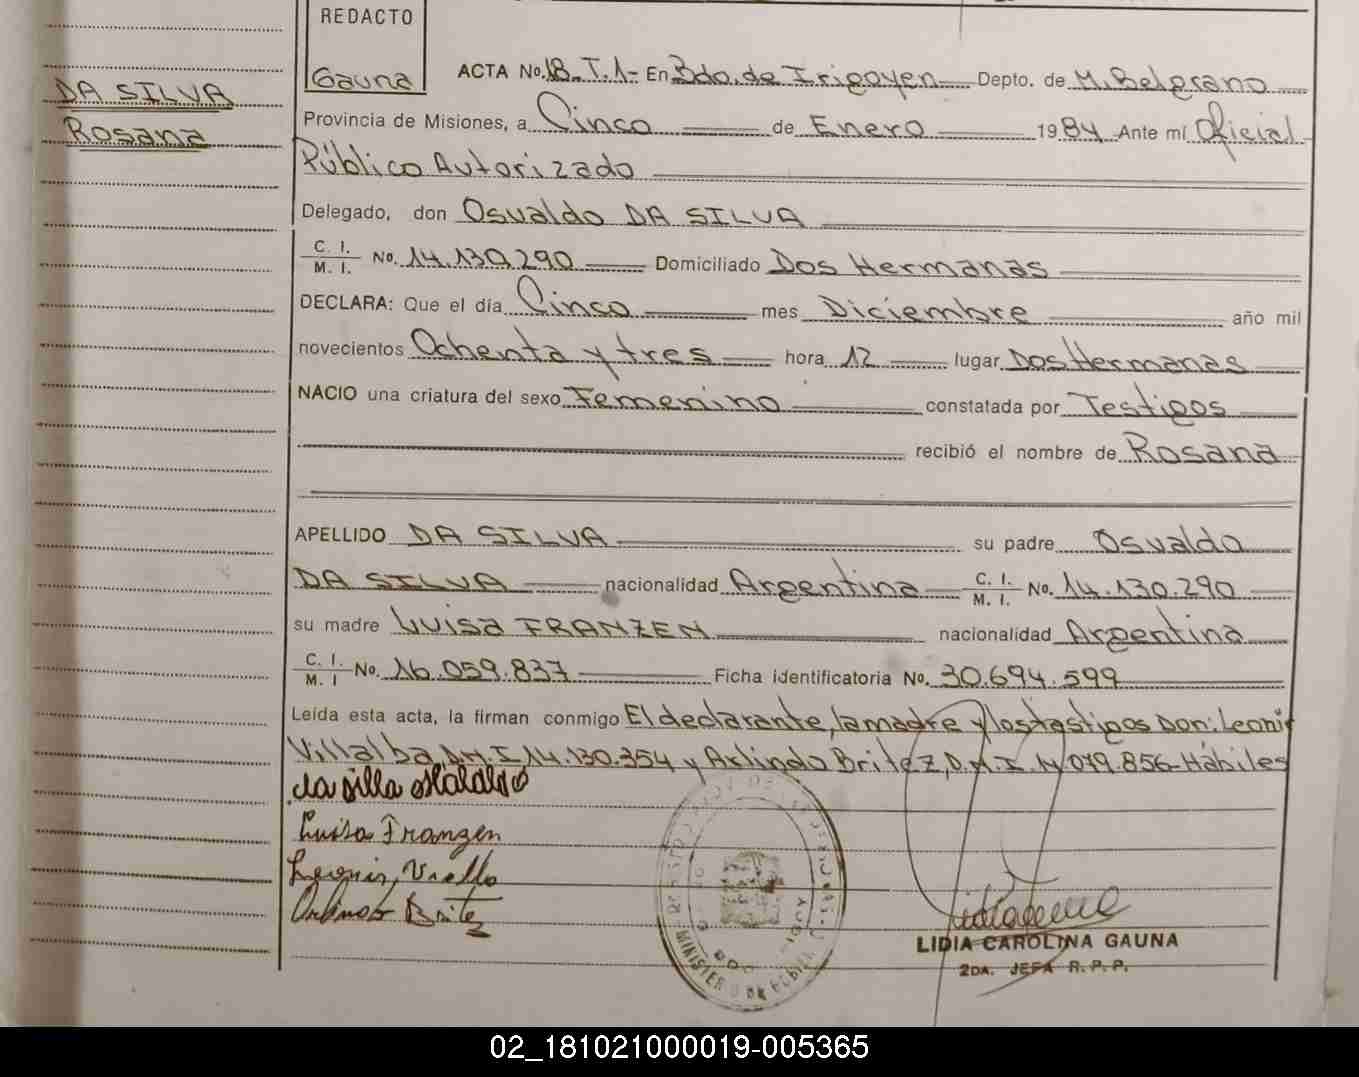 REDACTO
Gauna
DA SILVA
Rosana
ACTA No. 18. T. 1- En Bdo. de Irigoyen Depto. de M. Belgrano
Provincia de Misiones, a Cinco de Enero 1984 Ante mí Oficial
Público Autorizado
Delegado, don Osvaldo DA SILVA
C. I. / M. I. No. 14.130.290 Domiciliado Dos Hermanas
DECLARA: Que el día Cinco mes Diciembre año mil
novecientos Ochenta y tres hora 12 lugar Dos Hermanas
NACIO una criatura del sexo Femenino constatada por Testigos
recibió el nombre de Rosana
APELLIDO DA SILVA su padre Osvaldo
DA SILVA nacionalidad Argentina C. I. / M. I. No. 14.130.290
su madre Luisa FRANZEN nacionalidad Argentina
C. I. / M. I No. 16.059.837 Ficha identificatoria No. 30.694.599
Leída esta acta, la firman conmigo El declarante, la madre y los testigos Don: Leonir
Villalba D.M.I 14.130.354 y Arlindo Britez, D.M.I. 14.079.856- Hábiles
Luisa Franzen
Britez
LIDIA CAROLINA GAUNA
2DA. JEFA R. P. P.
02_181021000019-005365